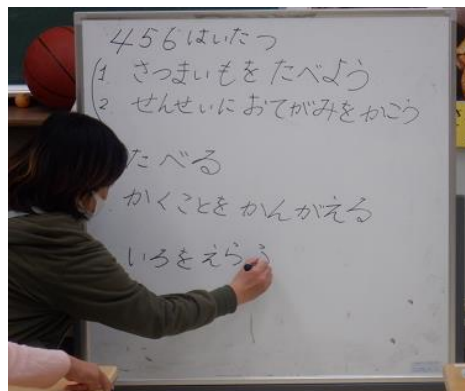 456はいたつ
1. さつまいもを たべよう
2. せんせいに おてがみを かこう
たべる
かくことを かんがえる
いろを えらう